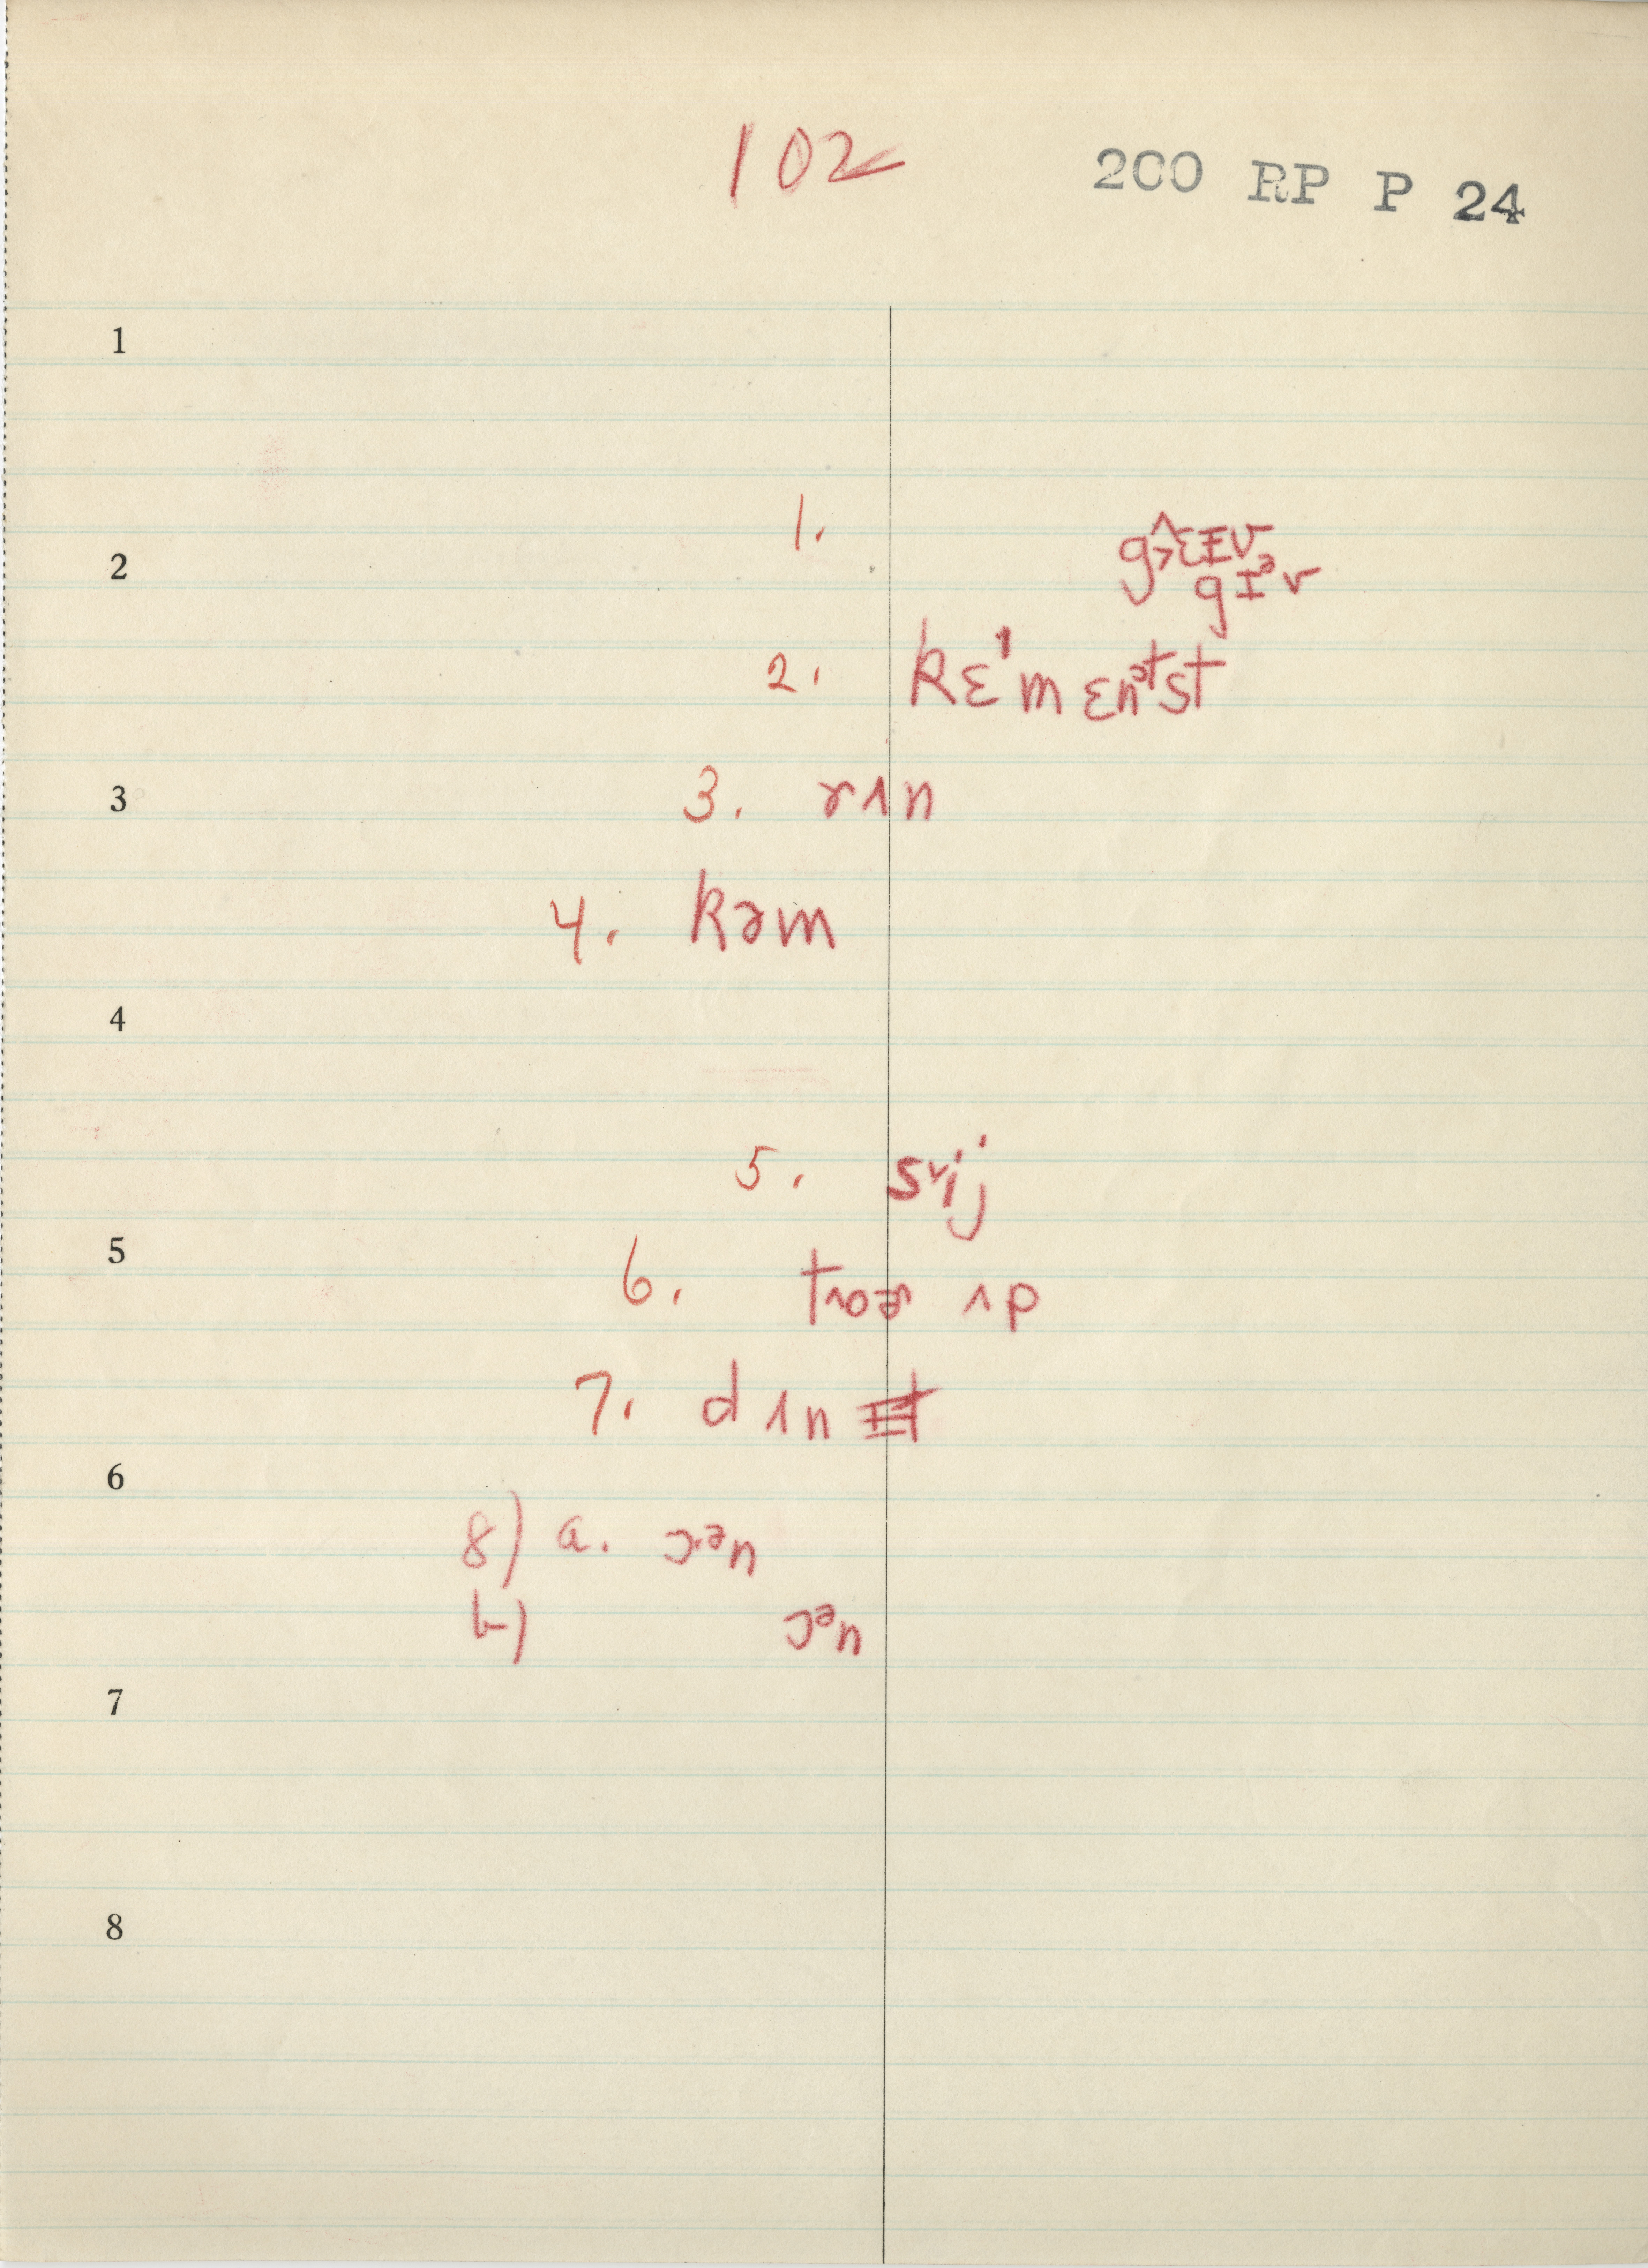 102
200 RP P 24
1
1.
g>^ɛɪv
2
gɪᵊv
2. kɛˈmɛnᵊtst
3
3. rʌn
4. kəm
4
5. sᵛij
5
6. tʌoər ʌp
7. dʌn
6
8) a. ɔ·ᵊn
b) ɔᵊn
7
8